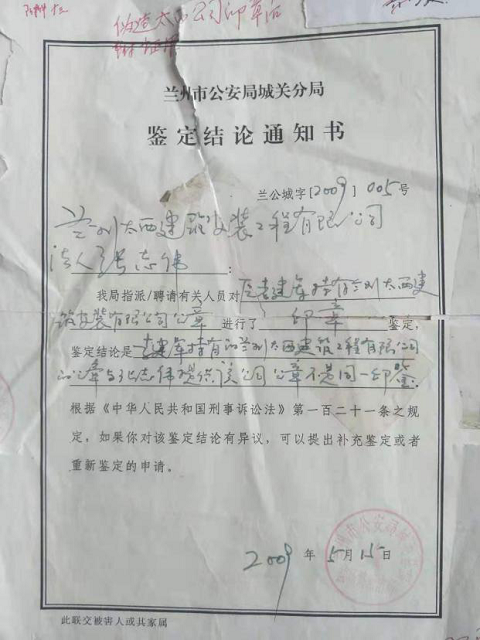 伪造太西公司印章后
兰州市公安局城关分局
鉴定结论通知书
兰公城字[2009]005号
兰州太西建筑安装工程有限公司
法人张志伟:
我局指派/聘请有关人员对 建军持有兰州太西建
筑安装有限公司公章进行了 印章 鉴定,
鉴定结论是 建军持有的兰州太西建筑工程有限公司
的公章与张志伟提供该公司公章不是同一印鉴
根据《中华人民共和国刑事诉讼法》第一百二十一条之规
定,如果你对该鉴定结论有异议,可以提出补充鉴定或者
重新鉴定的申请。
2009年5月15日
此联交被害人或其家属